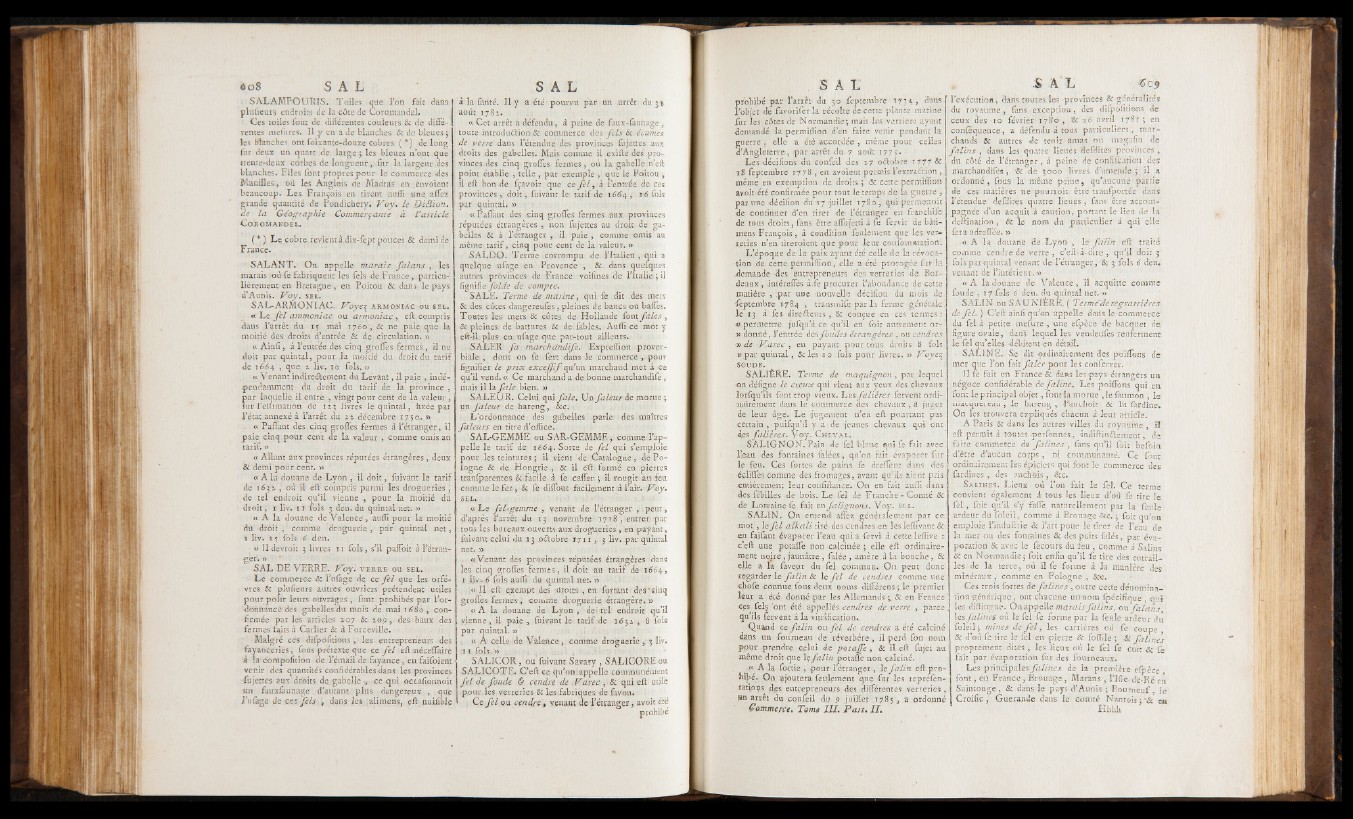 608 S A L
SALAMPOURIS. Toiles que l'on fait dans
plusieurs endroits de la côte de Coromandel.
Ces toiles sont de différentes couleurs & de diffé-
rentes mesures. Il y en a de blanches & de bleues ;
les blanches ont soixante-douze cobres (*) de long
sur deux un quart de large ; les bleues n'ont que
trente-deux cobres de longueur, sur la largeur des
blanches. Elles sont propres pour le commerce des
Manilles, où les Anglois de Madras en envoient
beaucoup. Les François en tirent aussi une assez
grande quantité de Pondichery. Voy. le Diction.
de la Géographie Commerçante à l'article
COROMANDEL.
(*) Le cobre revient à dix-sept pouces & demi de
France.
SALANT. On appelle marais salans, les
marais où se fabriquent les sels de France, particu-
lièrement en Bretagne, en Poitou & dans le pays
d'Aunis. Voy. SEL.
SAL-ARMONIAC. Voyez ARMONIAC ou SEL.
« Le sel ammoniac ou armoniac, est compris
dans l'arrêt du 15 mai 1760, & ne paie que la
moitié des droits d'entrée & de circulation. »
« Ainsi, à l'entrée des cinq grosses fermes, il ne
doit par quintal, pour la moitié du droit du tarif
de 1664, que 2 liv. 10 sols. »
« Venant indirectement du Levant, il paie, indé-
pendamment du droit du tarif de la province,
par laquelle il entre, vingt pour cent de la valeur,
sur l'estimation de 123 livres le quintal, fixée par
l'état annexé à l'arrêt du 22 décembre 1750. »
« Passant des cinq grosses fermes à l'étranger, il
paie cinq pour cent de la valeur, comme omis au
tarif. »
« Allant aux provinces réputées étrangères, deux
& demi pour cent. »
« A la douane de Lyon, il doit, suivant le tarif
de 1632, où il est compris parmi les drogueries,
de tel endroit qu'il vienne, pour la moitié du
droit, 1 liv. 11 sols 3 den. du quintal net. »
« A la douane de Valence, aussi pour la moitié
du droit, comme droguerie, par quintal net,
1 liv. 15 sols 6 den.
« Il devroit 3 livres 11 sols, s'il passoit à l'étran-
ger. »
SAL DE VERRE. Voy. VERRE ou SEL.
Le commerce & l'usage de ce sel que les orfé-
vres & plusieurs autres ouvriers prétendent utiles
pour polir leurs ouvrages, sont prohibés par l'or-
donnance des gabelles du mois de mai 1680, con-
firmée par les articles 207 & 209, des baux des
fermes faits à Carlier & à Forceville.
Malgré ces dispositions, les entrepreneurs des
fayanceries, sous prétexte que ce sel est nécessaire
à la composition de l'émail de fayance, en faisoient
venir des quantités considérables dans les provinces
sujettes aux droits de gabelle, ce qui occasionnoit
un fauxsaunage d'autant plus dangereux, que
l'usage de ces sels, dans les alimens, est nuisible
S A L
à la santé. Il y a été pourvu par un arrêt du 31
août 1782.
« Cet arrêt a défendu, à peine de faux-saunage,
toute introduction & commerce des sels & écumes
de verre dans l'étendue des provinces sujettes aux
droits des gabelles. Mais comme il existe des pro-
vinces des cinq grosses fermes, où la gabelle n'est
point établie, telle, par exemple, que le Poitou,
il est bon de sçavoir que ce sel, à l'entrée de ces
provinces, doit, suivant le tarif de 1664, 16 sols
par quintal. »
« Passant des cinq grosses fermes aux provinces
réputées étrangères, non sujettes au droit de ga-
belles & à l'étranger, il paie, comme omis au
même tarif, cinq pour cent de la valeur. »
SALDO. Terme corrompu de l'Italien, qui a
quelque usage en Provence, & dans quelques
autres provinces de France voisines de l'Italie ; il
signifie solde de compte.
SALE. Terme de marine, qui se dit des mers
& des côtes dangereuses, pleines de bancs ou basses.
Toutes les mers & côtes de Hollande sont sales,
& pleines de battures & de sables. Aussi ce mot y
est-il plus en usage que par-tout ailleurs.
SALER sa marchandise. Expression prover-
biale, dont on se sert dans le commerce, pour
signifier le prix excessif qu'un marchand met à ce
qu'il vend. « Ce marchand a de bonne marchandise,
mais il la sale bien. »
SALEUR. Celui qui sale. Un saleur de morue ;
un saleur de hareng, &c.
L'ordonnance des gabelles parle des maîtres
saleurs en titre d'office.
SAL-GEMME ou SAR-GEMME, comme l'ap-
pelle le tarif de 1664. Sorte de sel qui s'emploie
pour les teintures ; il vient de Catalogne, de Po-
logne & de Hongrie, & il est formé en pierres
transparentes & facile à se casser ; il rougit au feu
comme le fer, & se dissout facilement à l'air. Voy.
SEL.
« Le sel-gemme, venant de l'étranger, peut,
d'après l'arrêt du 13 novembre 1728, entrer par
tous les bureaux ouverts aux drogueries, en payant,
suivant celui du 23 octobre 1711, 3 liv. par quintal
net. »
« Venant des provinces réputées étrangères dans
les cinq grosses fermes, il doit au tarif de 1664,
1 liv. 6 sols aussi du quintal net. »
« Il est exempt des droits, en sortant des cinq
grosses fermes, comme droguerie étrangère. »
« A la douane de Lyon, de tel endroit qu'il
vienne, il paie, suivant le tarif de 1632, 8 sols
par quintal. »
« A celle de Valence, comme droguerie, 3 liv.
11 sols. »
SALICOR, ou suivant Savary, SALICORE ou
SALICOTE. C'est ce qu'on appelle communément
sel de soude & cendre de Varec, & qui est utile
pour les verreries & les fabriques de savon.
Ce sel ou cendre, venant de l'étranger, avoit été
prohibé
S A L
prohibé par l'arrêt du 30 septembre 1734, dans
l'objet de favoriser la récolte de cette plante marine
sur les côtes de Normandie ; mais les verriers ayant
demandé la permission d'en faire venir pendant la
guerre, elle a été accordée, même pour celles
d'Angleterre, par arrêt du 7 août 1775.
Les décisions du conseil des 27 octobre 1777 &
18 septembre 1778, en avoient permis l'extraction,
même en exemption de droits ; & cette permission
avoit été confirmée pour tout le temps de la guerre,
par une décision du 17 juillet 1780, qui permettoit
de continuer d'en tirer de l'étranger en franchise
de tous droits, sans être assujetti à se servir de bâti-
mens François, à condition seulement que les ver-
reries n'en tireroient que pour leur consommation.
L'époque de la paix ayant été celle de la révoca-
tion de cette permission, elle a été prorogée sur la
demande des entrepreneurs des verreries de Bor-
deaux, intéressés à se procurer l'abondance de cette
matière, par une nouvelle décision du mois de
septembre 1784, transmise par la ferme générale
le 13 à ses directeurs, & conçue en ces termes :
« permettre jusqu'à ce qu'il en soit autrement or-
» donné, l'entrée des soudes étrangères, ou cendres
» de Varec, en payant pour tous droits 8 sols
» par quintal, & les 10 sols pour livres. » Voyez
SOUDE.
SALIÈRE. Terme de maquignon, par lequel
on désigne le creux qui vient aux yeux des chevaux
lorsqu'ils sont trop vieux. Les salières servent ordi-
nairement dans le commerce des chevaux, à juger
de leur âge. Le jugement n'en est pourtant pas
certain, puisqu'il y a de jeunes chevaux qui ont
des salières. Voy. CHEVAL.
SALIGNON. Pain de sel blanc qui se fait avec
l'eau des fontaines salées, qu'on fait évaporer sur
le feu. Ces sortes de pains se dressent dans des
éclisses comme des fromages, avant qu'ils aient pris
entièrement leur consistance. On en fait aussi dans
des sébilles de bois. Le sel de Franche-Comté &
de Lorraine se fait en salignons. Voy. SEL.
SALIN. On entend assez généralement par ce
mot, le sel alkali tiré des cendres en les lessivant &
en faisant évaporer l'eau qui a servi à cette lessive :
c'est une potasse non calcinée ; elle est ordinaire-
ment noire, jaunâtre, salée, amère à la bouche, &
elle a la saveur du sel commun. On peut donc
regarder le salin & le sel de cendres comme une
chose connue sous deux noms différens ; le premier
leur a été donné par les Allemands ; & en France
ces sels ont été appellés cendres de verre, parce
qu'ils servent à la vitrification.
Quand ce salin ou sel de cendres a été calciné
dans un fourneau de réverbère, il perd son nom
pour prendre celui de potasse, & il est sujet au
même droit que le salin potasse non calciné.
« A la sortie, pour l'étranger, le salin est pro-
hibé. On ajoutera seulement que sur les représen-
tations des entrepreneurs des différentes verreries,
un arrêt du conseil du 9 juillet 1785, a ordonné
Commerce. Tome III. Part. II.
S A L 609
l'exécution, dans toutes les provinces & généralités
du royaume, sans exception, des dispositions de
ceux des 10 février 1780, & 26 avril 1781 ; en
conséquence, a défendu à tous particuliers, mar-
chands & autres de tenir amas ou magasin de
salins, dans les quatre lieues desdites provinces,
du côté de l'étranger, à peine de confiscation des
marchandises, & de 3000 livres d'amende ; il a
ordonné, sous la même peine, qu'aucune partie
de ces matières ne pourroit être transportée dans
l'étendue desdites quatre lieues, sans être accom-
pagnée d'un acquit à caution, portant le lieu de la
destination, & le nom du particulier à qui elle
sera adressée. »
« A la douane de Lyon, le salin est traité
comme cendre de verre, c'est-à-dire, qu'il doit 3
sols par quintal venant de l'étranger, & 3 sols 6 den.
venant de l'intérieur. »
« A la douane de Valence, il acquitte comme
soude, 17 sols 6 den. du quintal net. »
SALIN ou SAUNIÈRE. (Terme de regrattières
de sel.) C'est ainsi qu'on appelle dans le commerce
du sel à petite mesure, une espèce de bacquet de
figure ovale, dans lequel les vendeuses renferment
le sel qu'elles débitent en détail.
SALINE. Se dit ordinairement des poissons de
mer que l'on fait saler pour les conserver.
Il se fait en France & dans les pays étrangers un
négoce considérable de saline. Les poissons qui en
font le principal objet, sont la morue, le saumon, le
maquereau, le hareng, l'anchois & la sardine.
On les trouvera expliqués chacun à leur article.
A Paris & dans les autres villes du royaume, il
est permis à toutes personnes, indistinctement, de
faire commerce de salines, sans qu'il soit besoin
d'être d'aucun corps, ni communauté. Ce sont
ordinairement les épiciers qui font le commerce des
sardines, des anchois, &c.
SALINES. Lieux où l'on fait le sel. Ce terme
convient également à tous les lieux d'où se tire le
sel, soit qu'il s'y fasse naturellement par la seule
ardeur du soleil, comme à Brouage &c. ; soit qu'on
emploie l'industrie & l'art pour le tirer de l'eau de
la mer ou des fontaines & des puits salés, par éva-
poration & avec le secours du feu, comme à Salins
& en Normandie ; soit enfin qu'il se tire des entrail-
les de la terre, où il se forme à la manière des
minéraux, comme en Pologne, &c.
Ces trois sortes de salines, outre cette dénomina-
tion générique, ont chacune un nom spécifique, qui
les distingue. On appelle marais salins, ou salans,
les salines où le sel se forme par la seule ardeur du
soleil ; mines de sel, les carrières où se coupe,
& d'où se tire le sel en pierre & fossile ; & salines
proprement dites, les lieux où le sel se cuit & se
fait par évaporation sur des fourneaux.
Les principales salines de la première espèce,
sont, en France, Brouage, Marans, l'Isle-de-Ré en
Saintonge, & dans le pays d'Aunis ; Bourneuf, le
Croisic, Guerande dans le comté Nantois ; & en
Hhhh